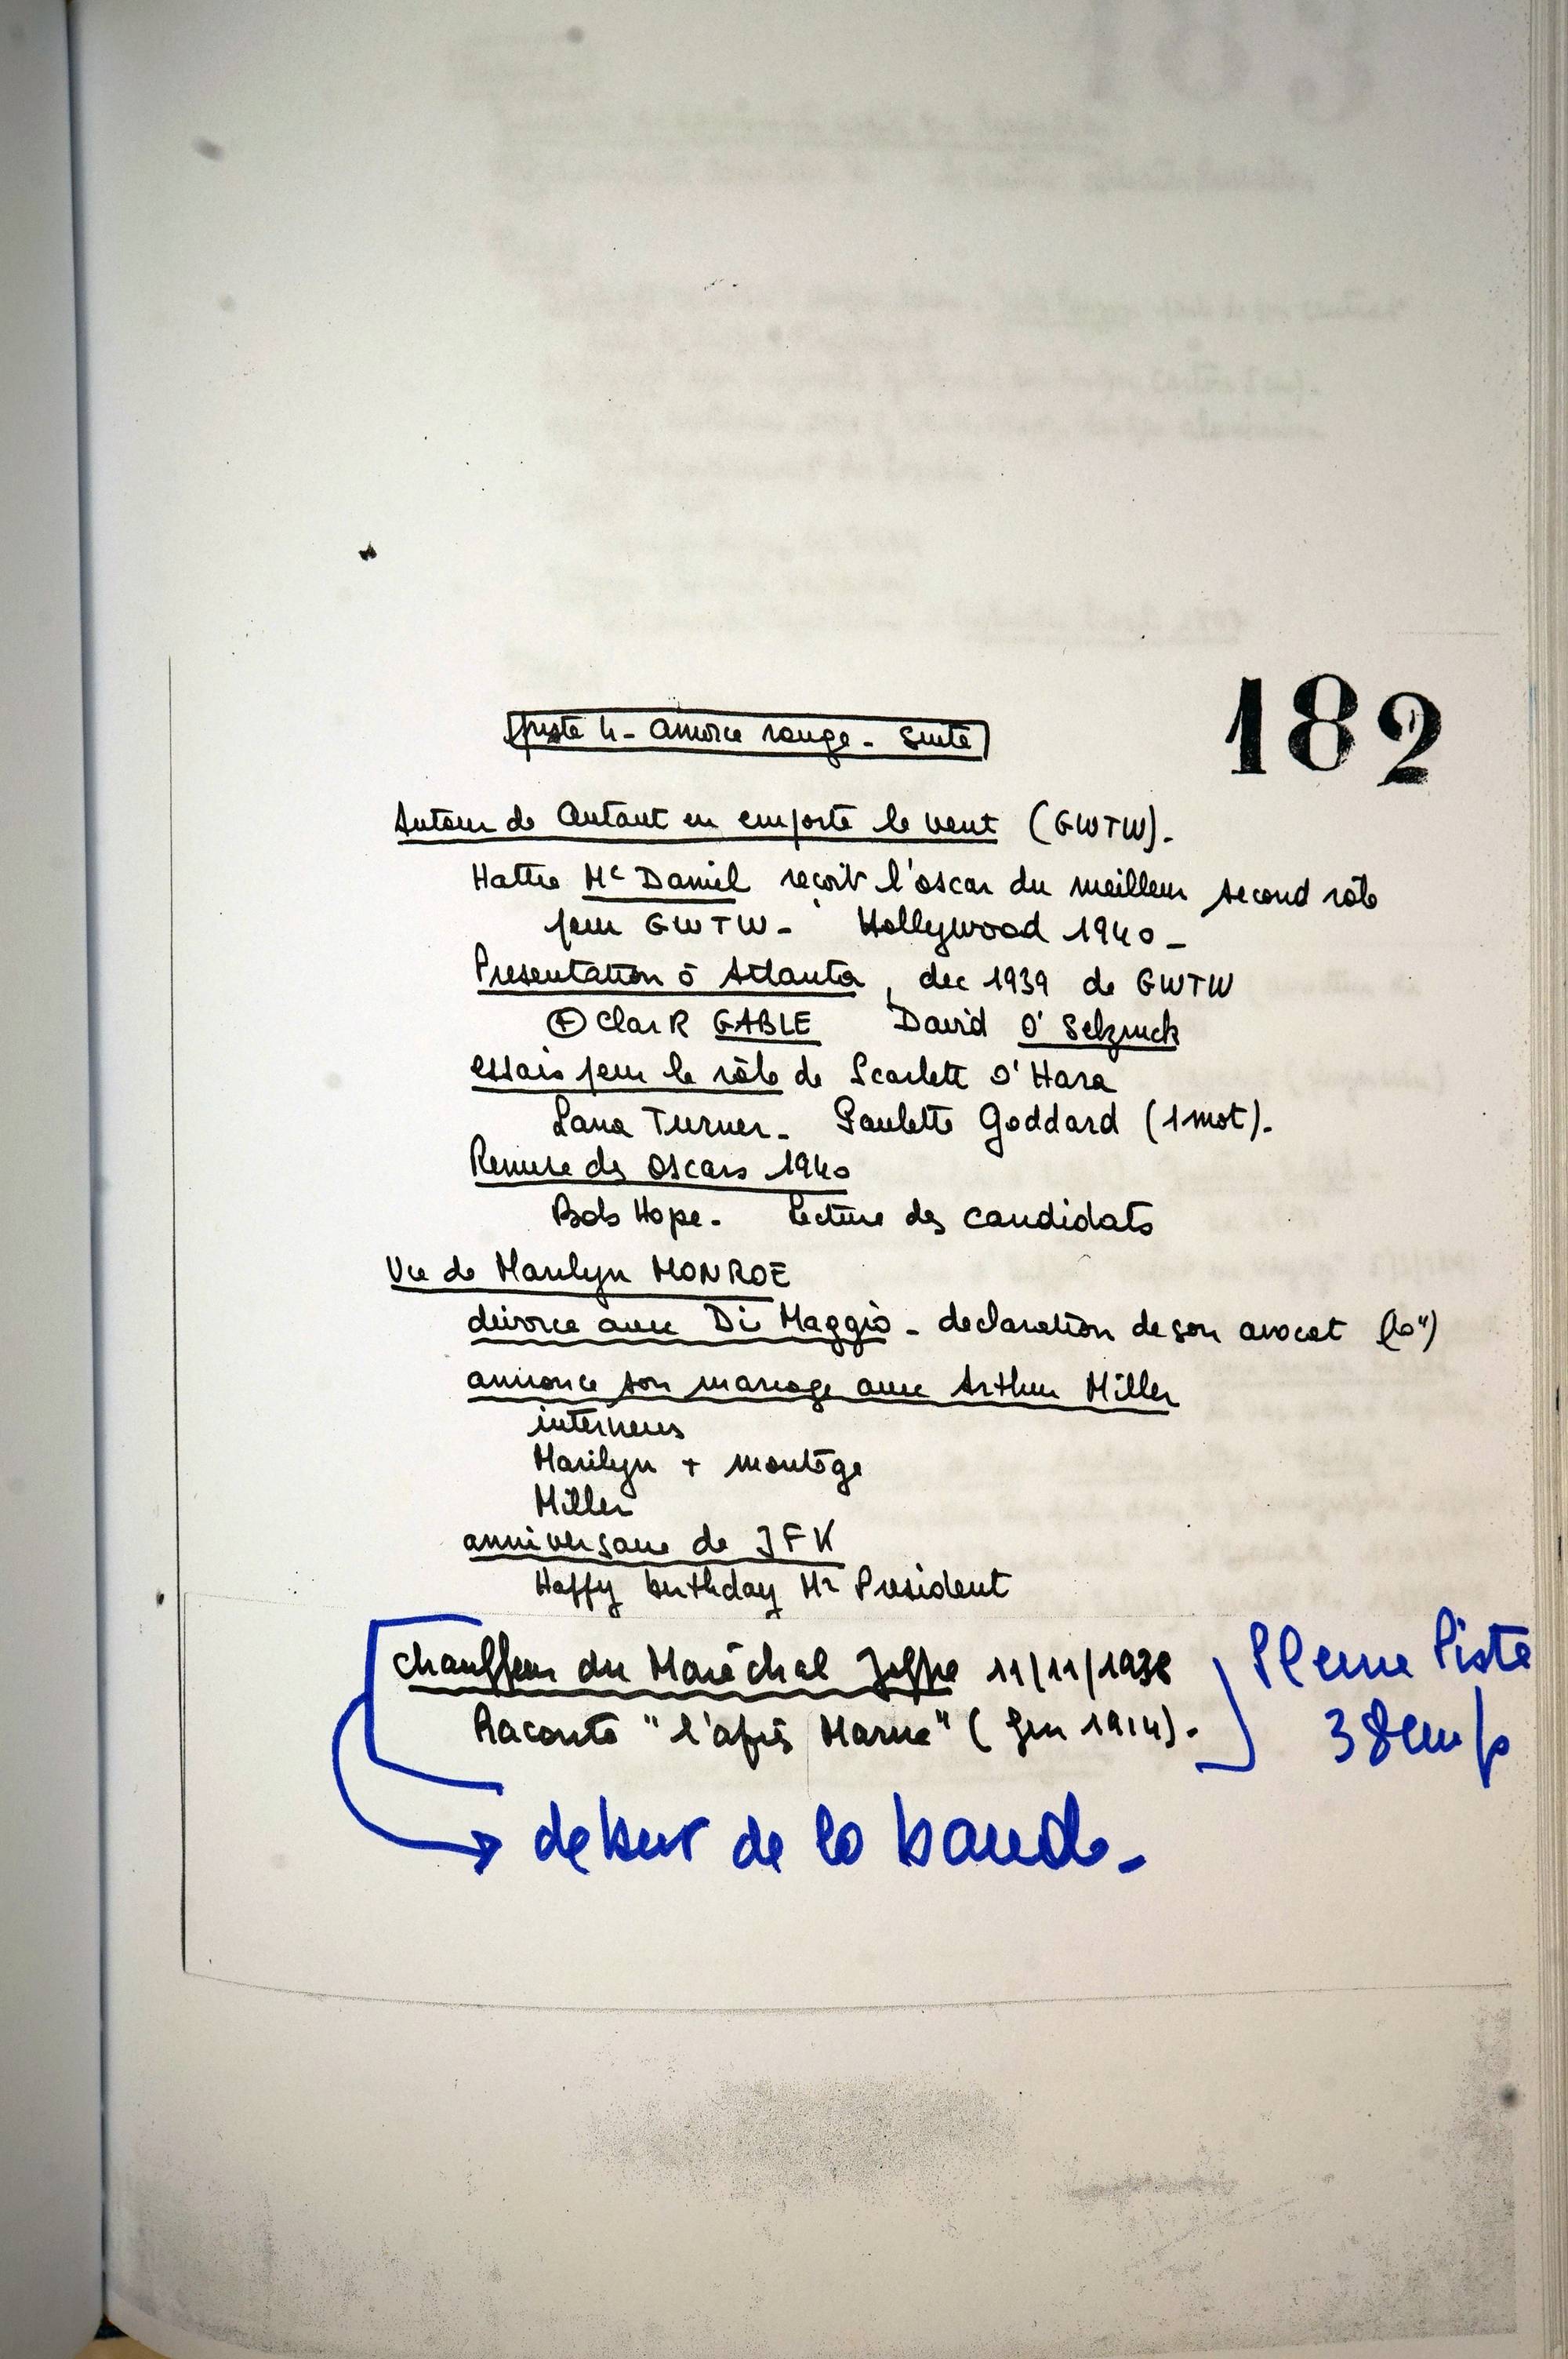 182
piste 4 - amorce rouge - suite
Autour de Autant en emporte le vent (GWTW).
Hattie Mc Daniel reçoit l'oscar du meilleur second rôle
pour GWTW - Hollywood 1940 -
Presentation à Atlanta, dec 1939 de GWTW
Clark GABLE David O' Selznick
essais pour le rôle de Scarlett O'Hara
Lana Turner - Paulette Goddard (1 mot).
Remise des Oscars 1940
Bob Hope. Lecture des candidats
Vie de Marilyn MONROE
divorce avec Di Maggio - declaration de son avocat
annonce son mariage avec Arthur Miller
interviews
Marilyn + montage
Miller
anniversaire de JFK
Happy birthday Mr President
chauffeur du Maréchal Joffre 11/11/1938
Raconte "l'après Marne" ( 1914).
Pleine Piste
38 cm/s
debut de la bande -